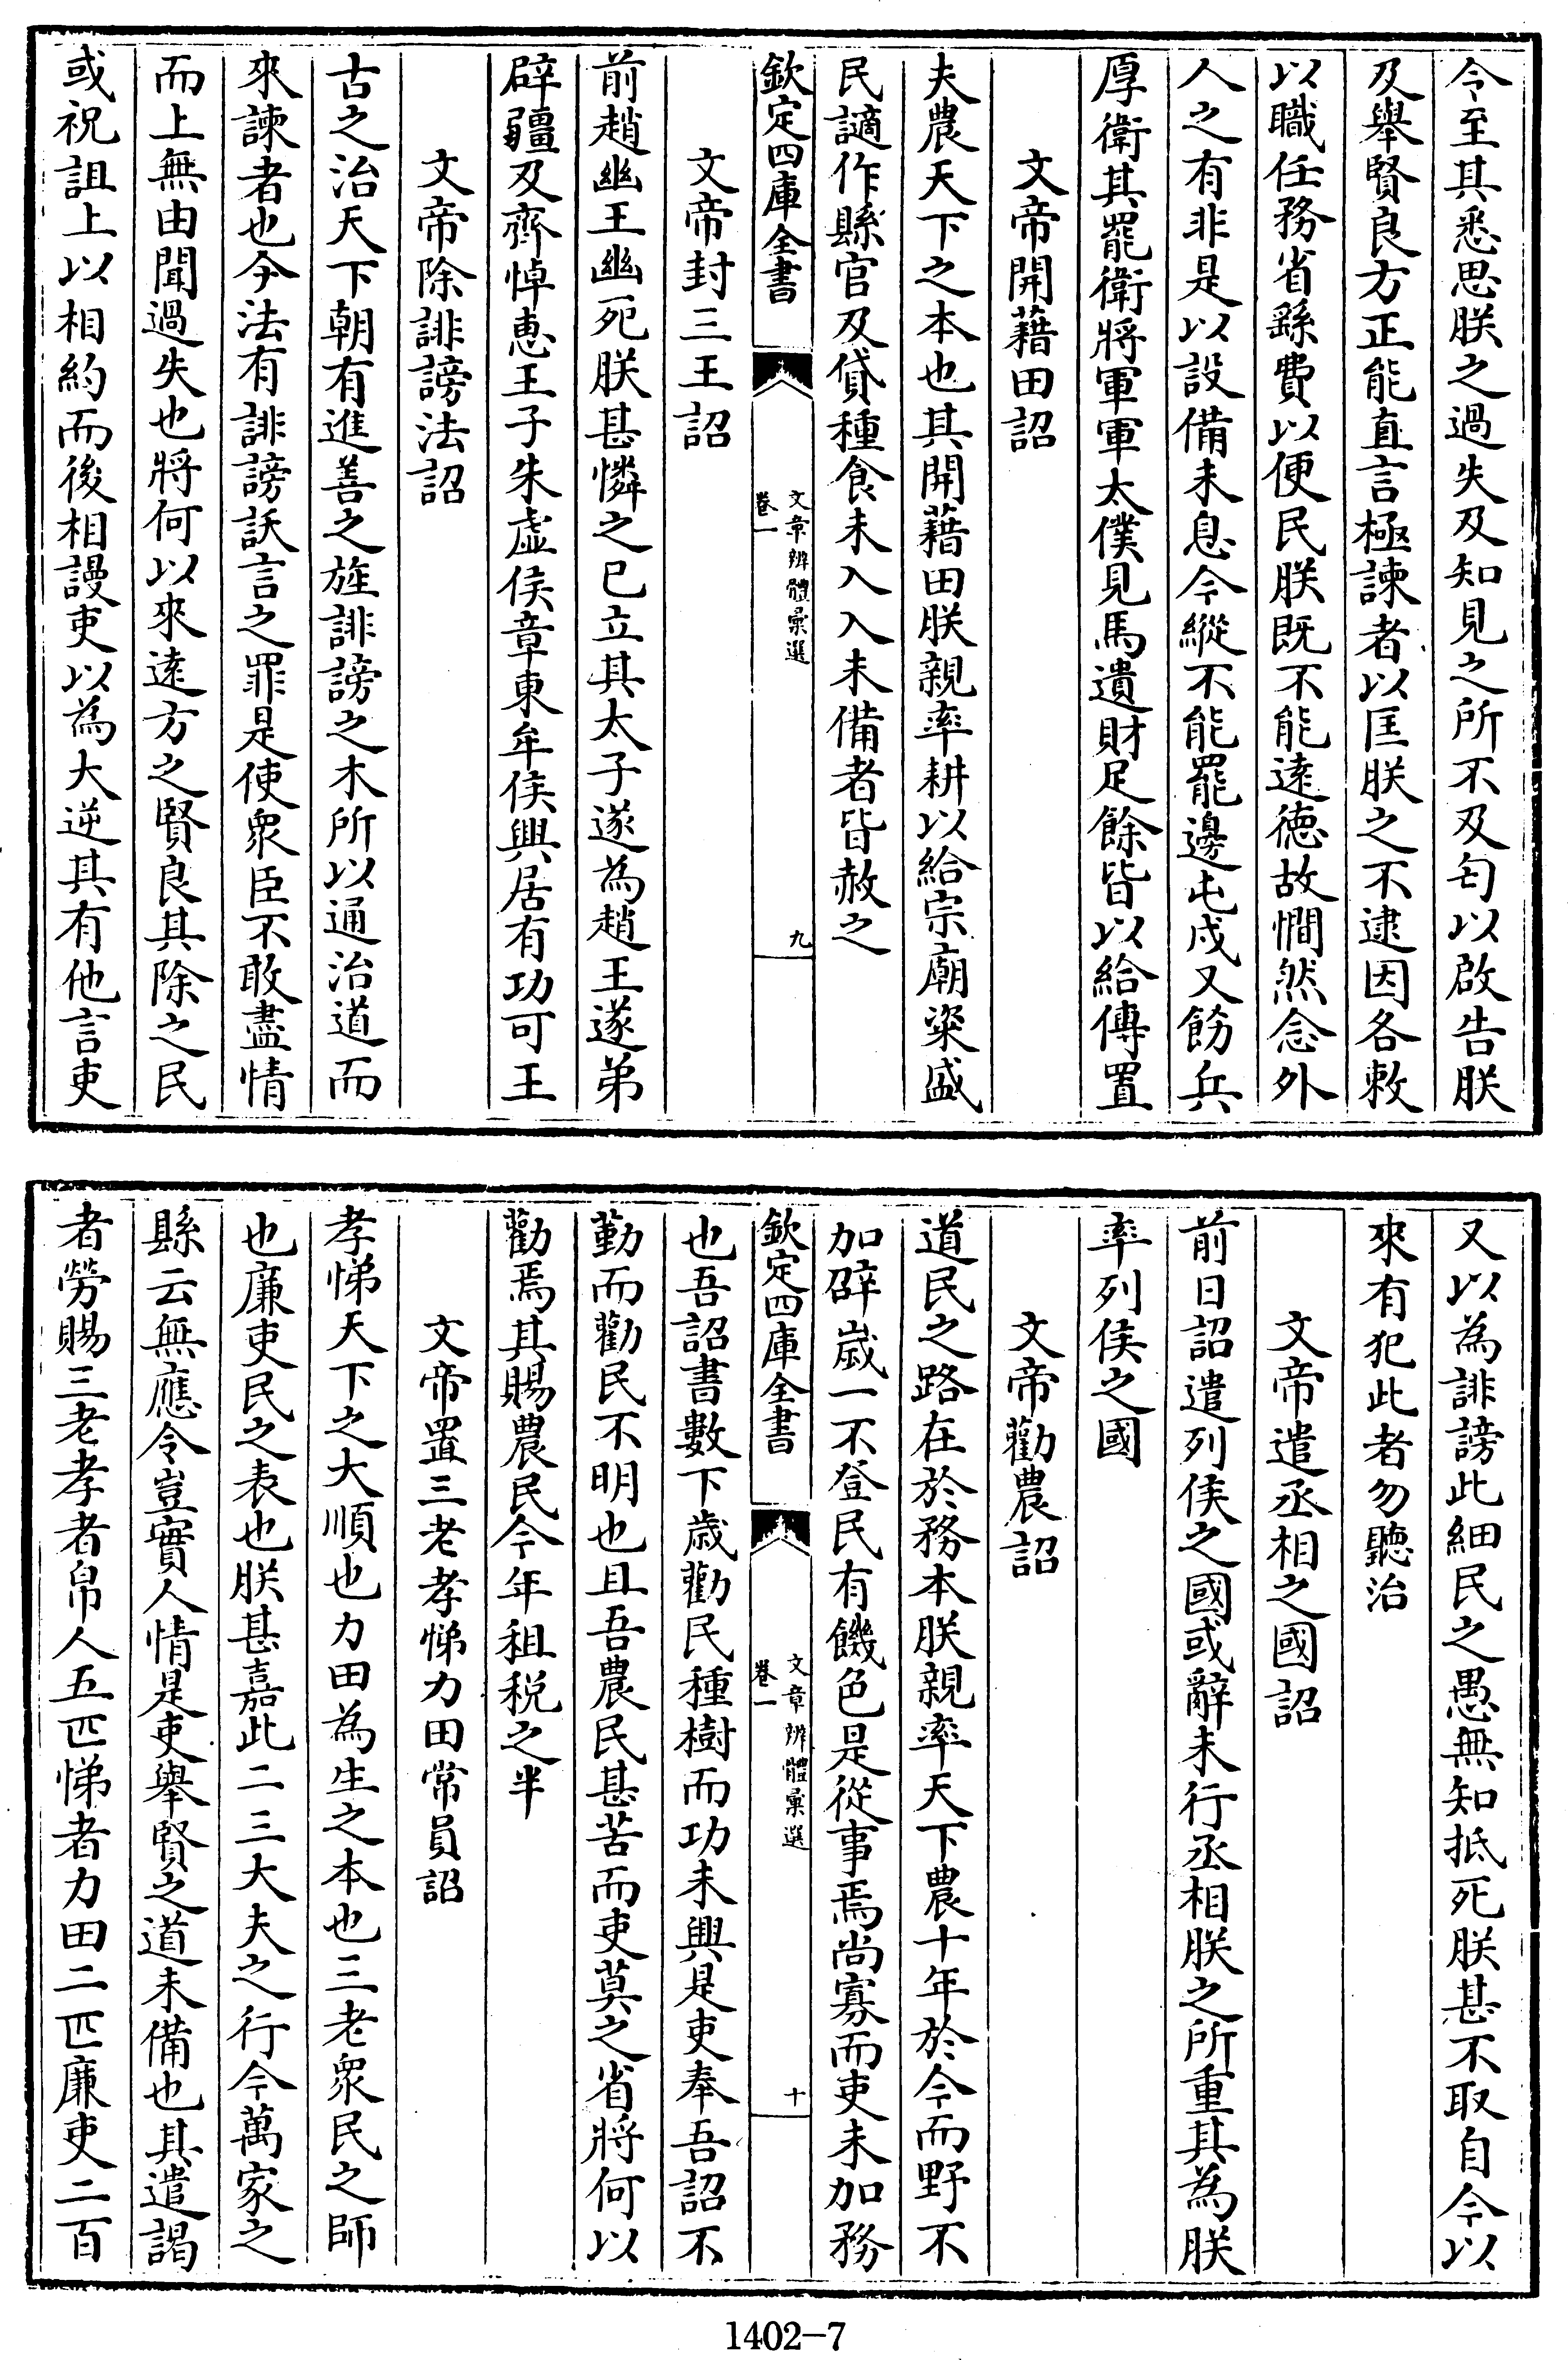 令至其悉思朕之過失及知見之所不及匄以啟告朕
及舉賢良方正能直言極諫者以匡朕之不逮因各敕
以職任務省繇費以便民朕既不能逺徳故憪然念外
人之有非是以設備未息今縱不能罷邊屯戍又飭兵
厚衛其罷衛將軍軍太僕見馬遺財足餘皆以給傳置
文帝開藉田詔
夫農天下之本也其開藉田朕親率耕以給宗廟粢盛
民讁作縣官及貸種食未入入未備者皆赦之
欽定四庫全書
文章辨體彙選
卷一
九
文帝封三王詔
前趙幽王幽死朕甚憐之已立其太子遂為趙王遂弟
辟疆及齊悼惠王子朱虛侯章東牟侯興居有功可王
文帝除誹謗法詔
古之治天下朝有進善之旌誹謗之木所以通治道而
來諫者也今法有誹謗訞言之罪是使衆臣不敢盡情
而上無由聞過失也將何以來逺方之賢良其除之民
或祝詛上以相約而後相謾吏以為大逆其有他言吏
又以為誹謗此細民之愚無知抵死朕甚不取自今以
來有犯此者勿聽治
文帝遣丞相之國詔
前日詔遣列侯之國或辭未行丞相朕之所重其為朕
率列侯之國
文帝勸農詔
道民之路在於務本朕親率天下農十年於今而野不
加辟嵗一不登民有饑色是從事焉尚寡而吏未加務
欽定四庫全書
文章辨體彙選
卷一
十
也吾詔書數下歳勸民種樹而功未興是吏奉吾詔不
勤而勸民不明也且吾農民甚苦而吏莫之省將何以
勸焉其賜農民今年租税之半
文帝置三老孝悌力田常員詔
孝悌天下之大順也力田為生之本也三老衆民之師
也廉吏民之表也朕甚嘉此二三大夫之行今萬家之
縣云無應令豈實人情是吏舉賢之道未備也其遣謁
者勞賜三老孝者帛人五匹悌者力田二匹廉吏二百
1402-7